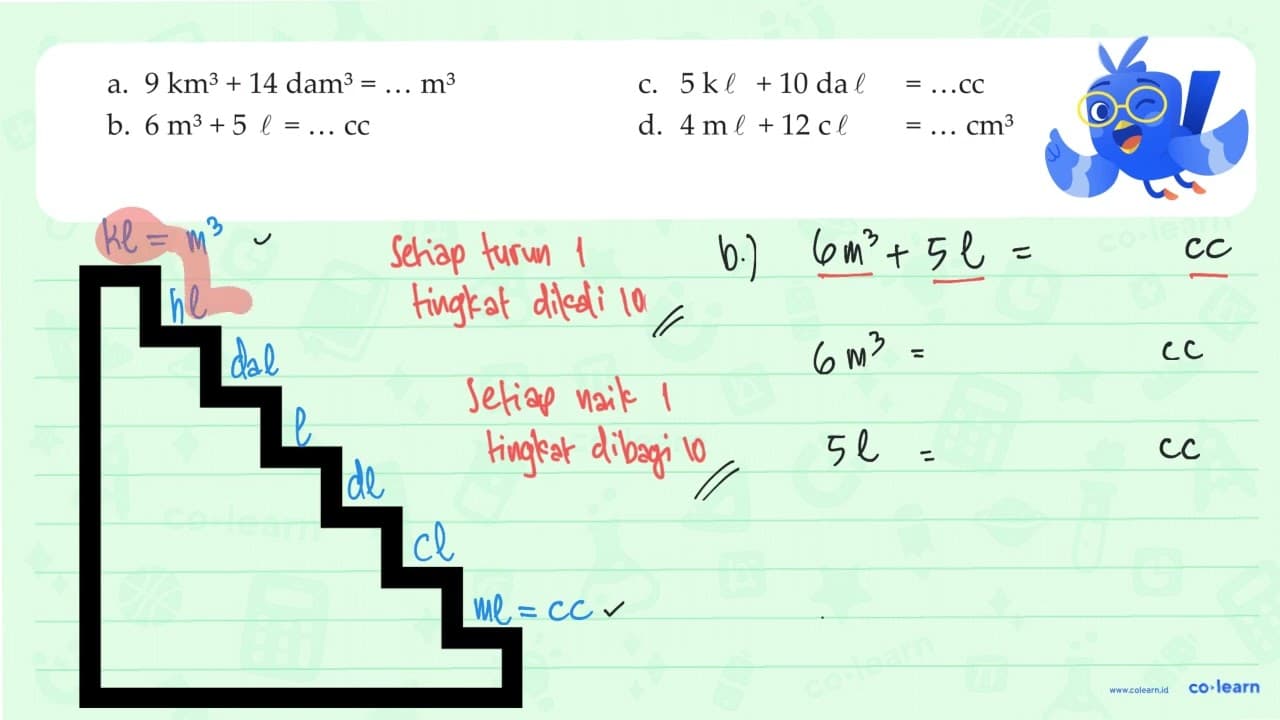 a. 9 km³ + 14 dam³ = ... m³
b. 6 m³ + 5 ℓ = ... cc
c. 5 k ℓ + 10 da ℓ = ...cc
d. 4 m ℓ + 12 c ℓ = ... cm³
kl = m³
hl
dal
l
dl
cl
ml = cc
Setiap turun 1
tingkat dikali 10
Setiap naik 1
tingkat dibagi 10
b.) 6 m³ + 5 l = cc
6 m³ = cc
5 l = cc
co·learn
co·learn
co·learn
www.colearn.id co·learn